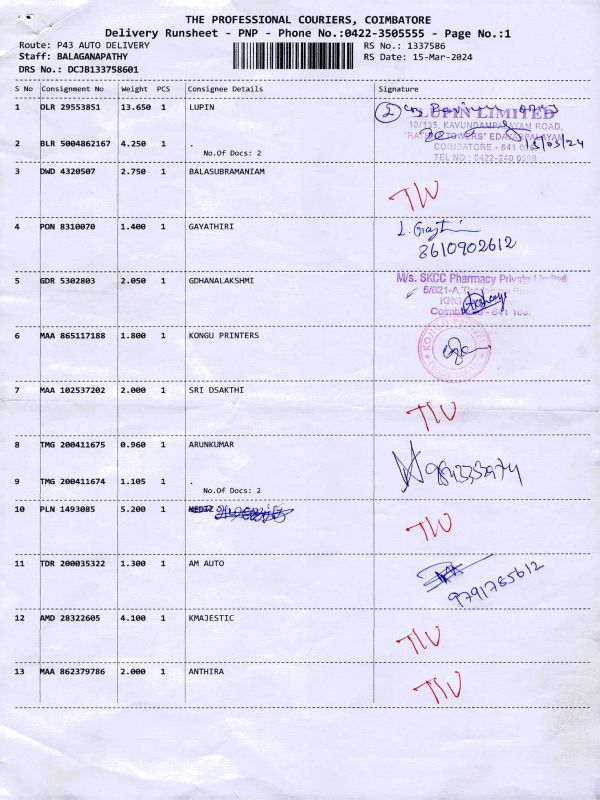 THE PROFESSIONAL COURIERS, COIMBATORE
Delivery Runsheet - PNP - Phone No.:0422-3505555 - Page No.:1
Route: P43 AUTO DELIVERY
RS No.: 1337586
Staff: BALAGANAPATHY
RS Date: 15-Mar-2024
DRS No.: DCJB133758601
S No Consignment No Weight PCS Consignee Details Signature
1 DLR 29553851 13.650 1 LUPIN
2
LUPIN LIMITED
10/135, KAVUNDAMPALAYAM ROAD,
TOWERS" EDAYARPALAYAM
COIMBATORE - 641
TEL NO : 0422-240 0586
15/03/24
2 BLR 5004862167 4.250 1 .
No.Of Docs: 2
3 DWD 4320507 2.750 1 BALASUBRAMANIAM
4 PON 8310070 1.400 1 GAYATHIRI
8610902612
5 GDR 5302803 2.050 1 GDHANALAKSHMI
M/s. SKCC Pharmacy Private Limited
5/621-A,
KNG
Coimbatore - 641 108.
6 MAA 865117188 1.800 1 KONGU PRINTERS
KONGU
7 MAA 102537202 2.000 1 SRI DSAKTHI
8 TMG 200411675 0.960 1 ARUNKUMAR
9 TMG 200411674 1.105 1 .
No.Of Docs: 2
10 PLN 1493085 5.200 1
11 TDR 200035322 1.300 1 AM AUTO
9791785612
12 AMD 28322605 4.100 1 KMAJESTIC
13 MAA 862379786 2.000 1 ANTHIRA